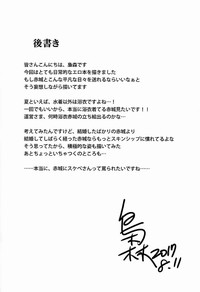 後書き
皆さんこんにちは、梟森です
今回はとても日常的なエロ本を描きました
もし赤城とこんな平凡な日々を送れるならいいなぁ、と
そう妄想しながら描いてます
夏といえば、水着以外は浴衣ですよね…！
一回でもいいから、本当に浴衣着てる赤城見たいです！！
運営さま、何時浴衣赤城の立ち絵出るのかな…
考えてみたんですけど、結婚したばかりの赤城より
結婚してしばらく経った赤城ならもっとスキンシップに慣れてるよな
そう思ってたから、積極的な姿も描いてみた
あとちょっといちゃつくのところも…
……本当に、赤城にスケベさんって罵られたいですね……
梟森 2017
8.11